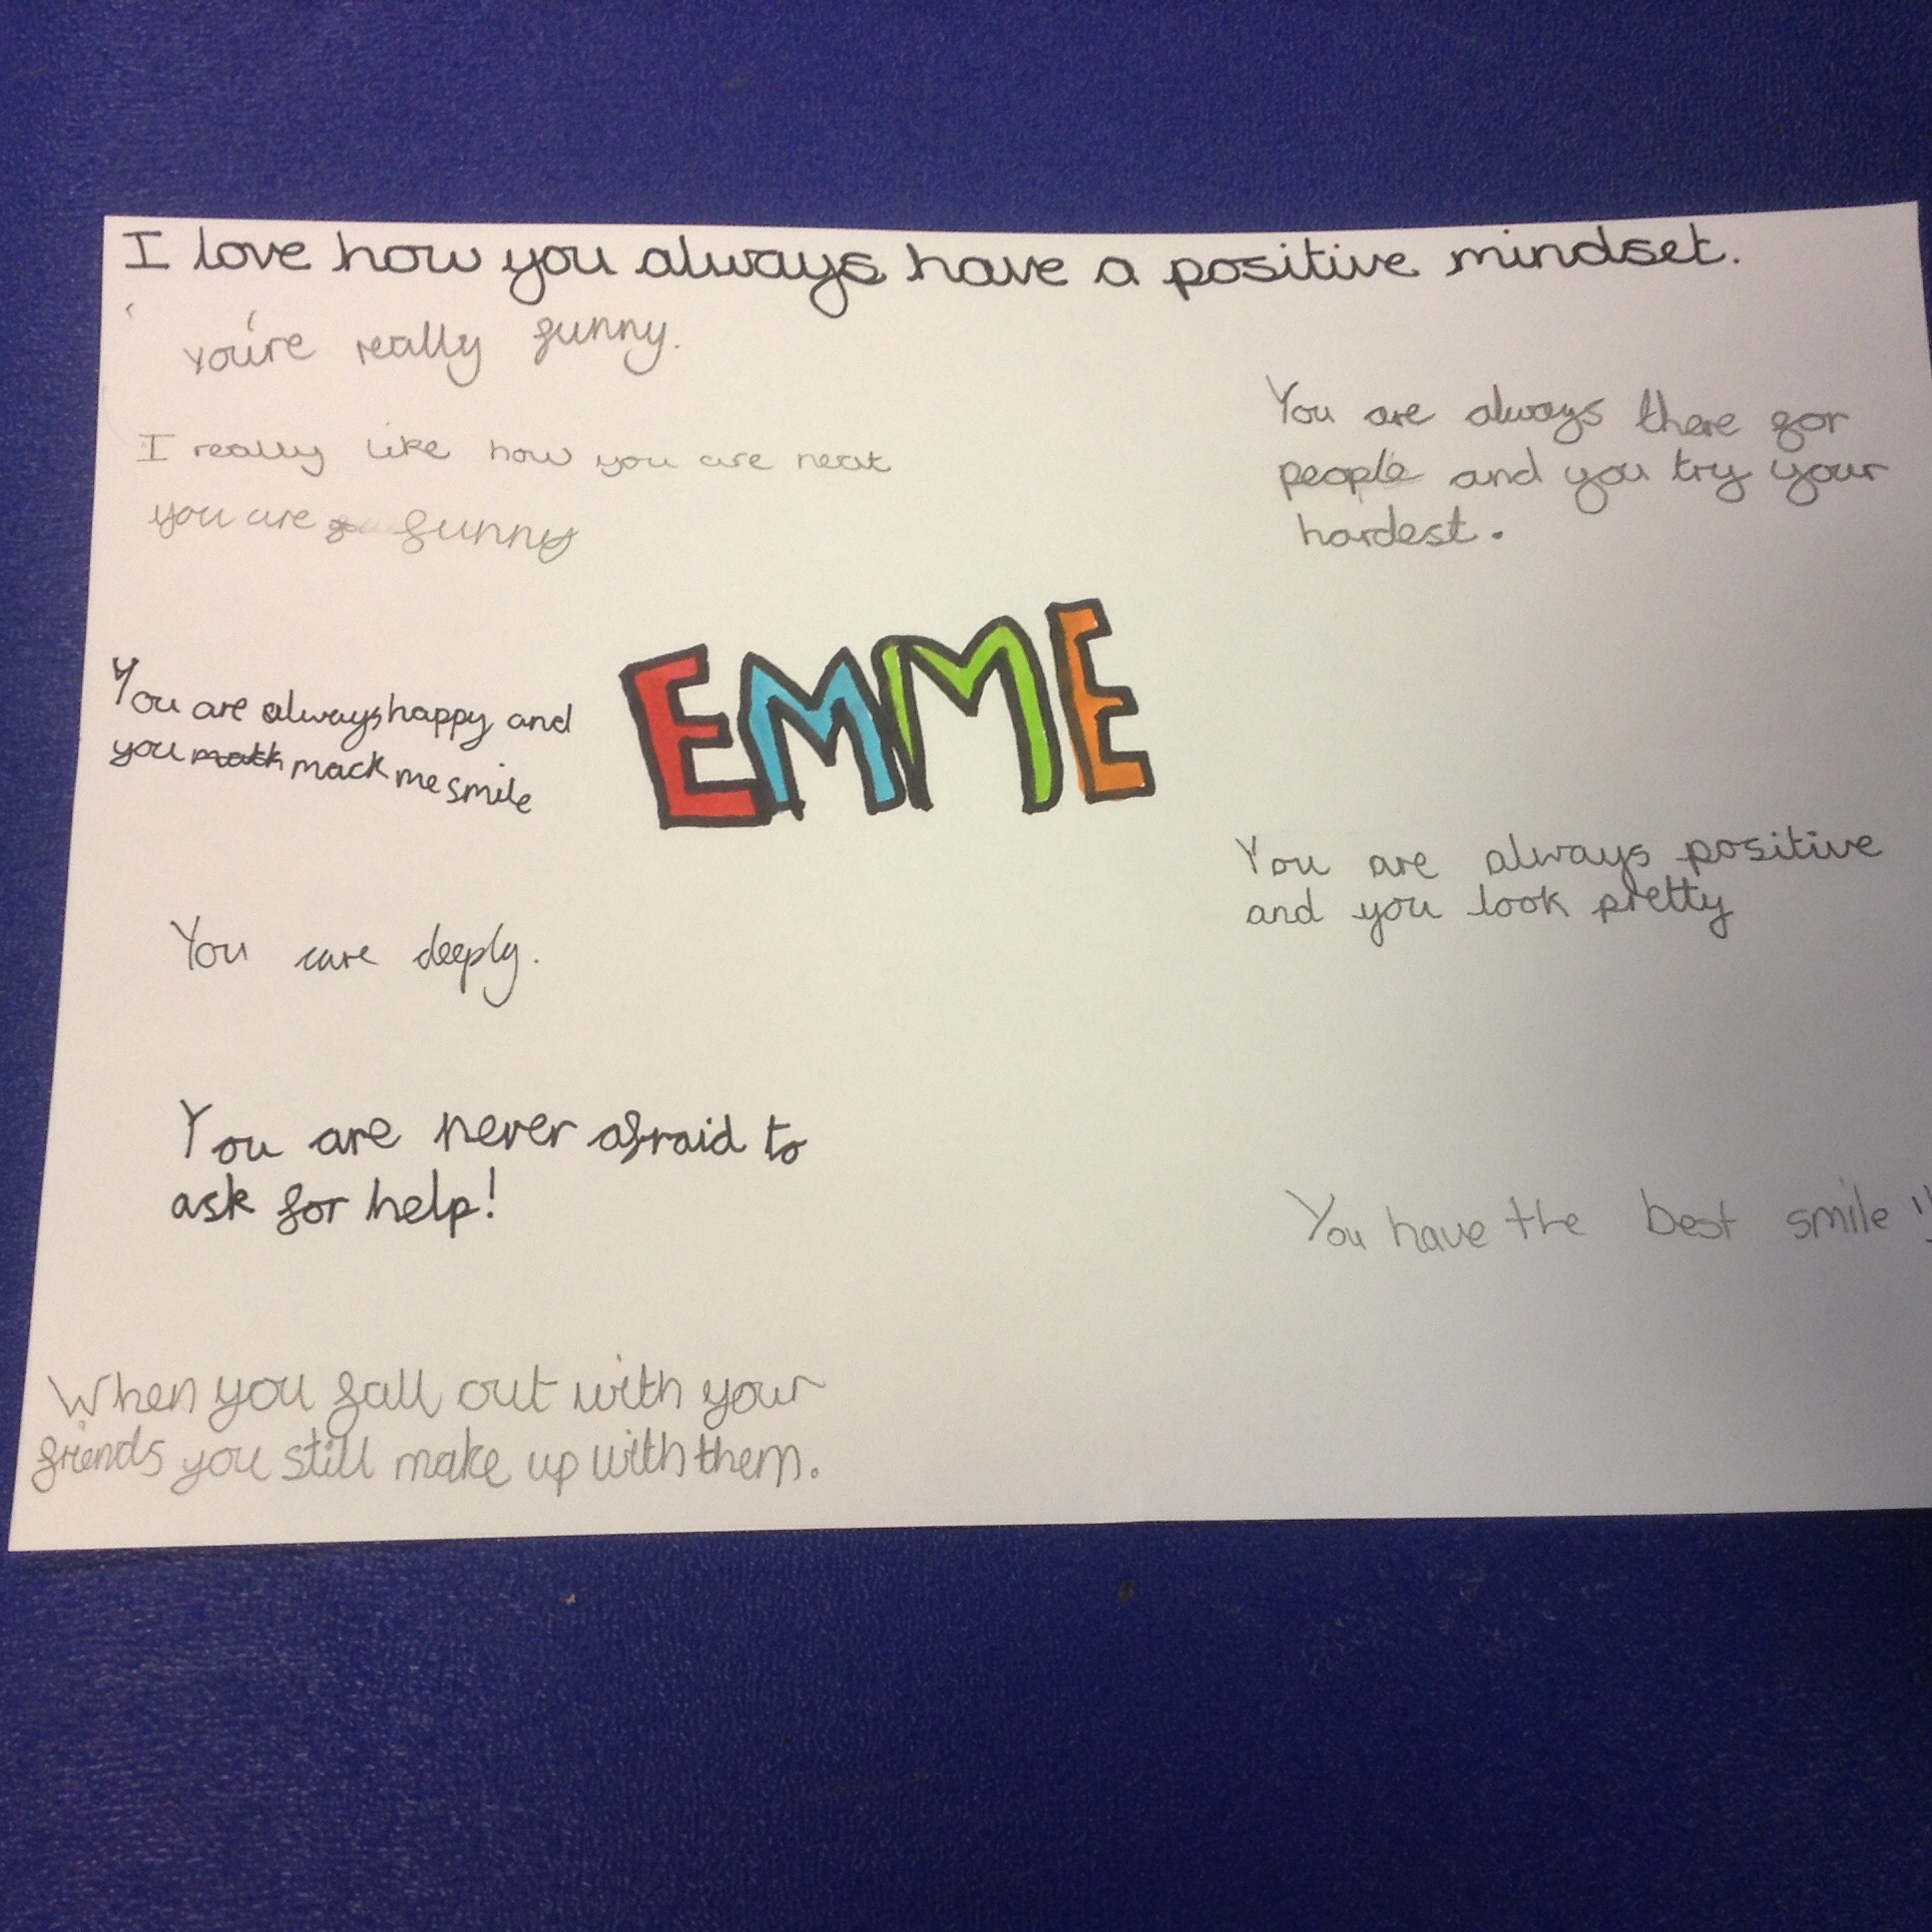 I love how you always have a positive mindset.
you're really funny.
I really like how you are neat
you are funny
You are always there for
people and you try your
hardest.
EMME
You are always happy and
you mack me smile
You are always positive
and you look pretty
You care deeply.
You are never afraid to
ask for help!
You have the best smile !!
When you fall out with your
friends you still make up with them.